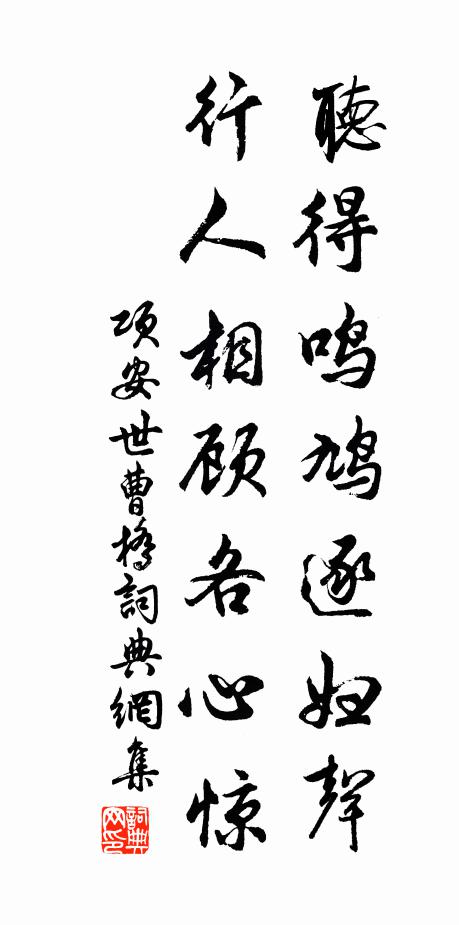 聽得鸣鸠逐妇聲
行人相顾各心惊
项安世曹橋詞典網集
詞典网印